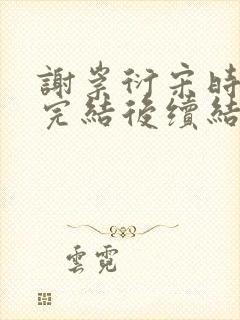 謝崇衍宋時
完結後續結
雲霓